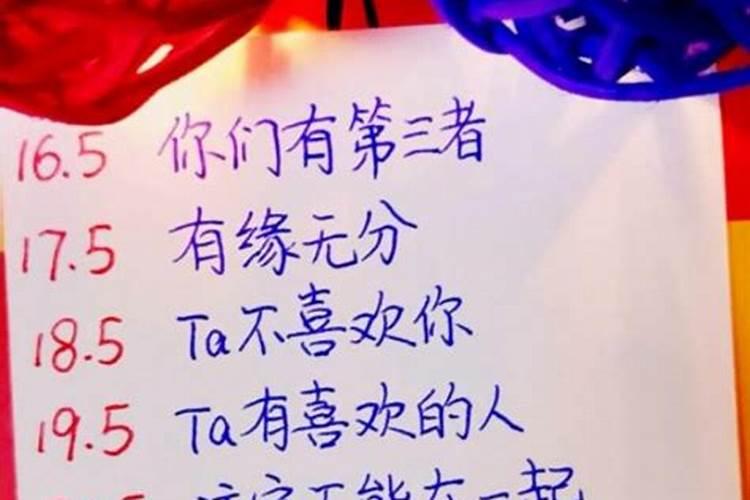 16.5 你们有第三者
17.5 有缘无分
18.5 Ta不喜欢你
19.5 Ta有喜欢的人
不能在一起